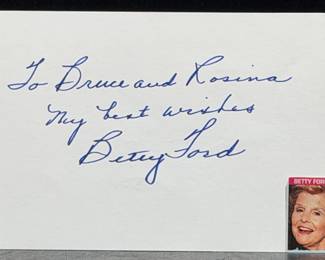 To Bruce and Rosina
My best wishes
Betty Ford
BETTY FOR